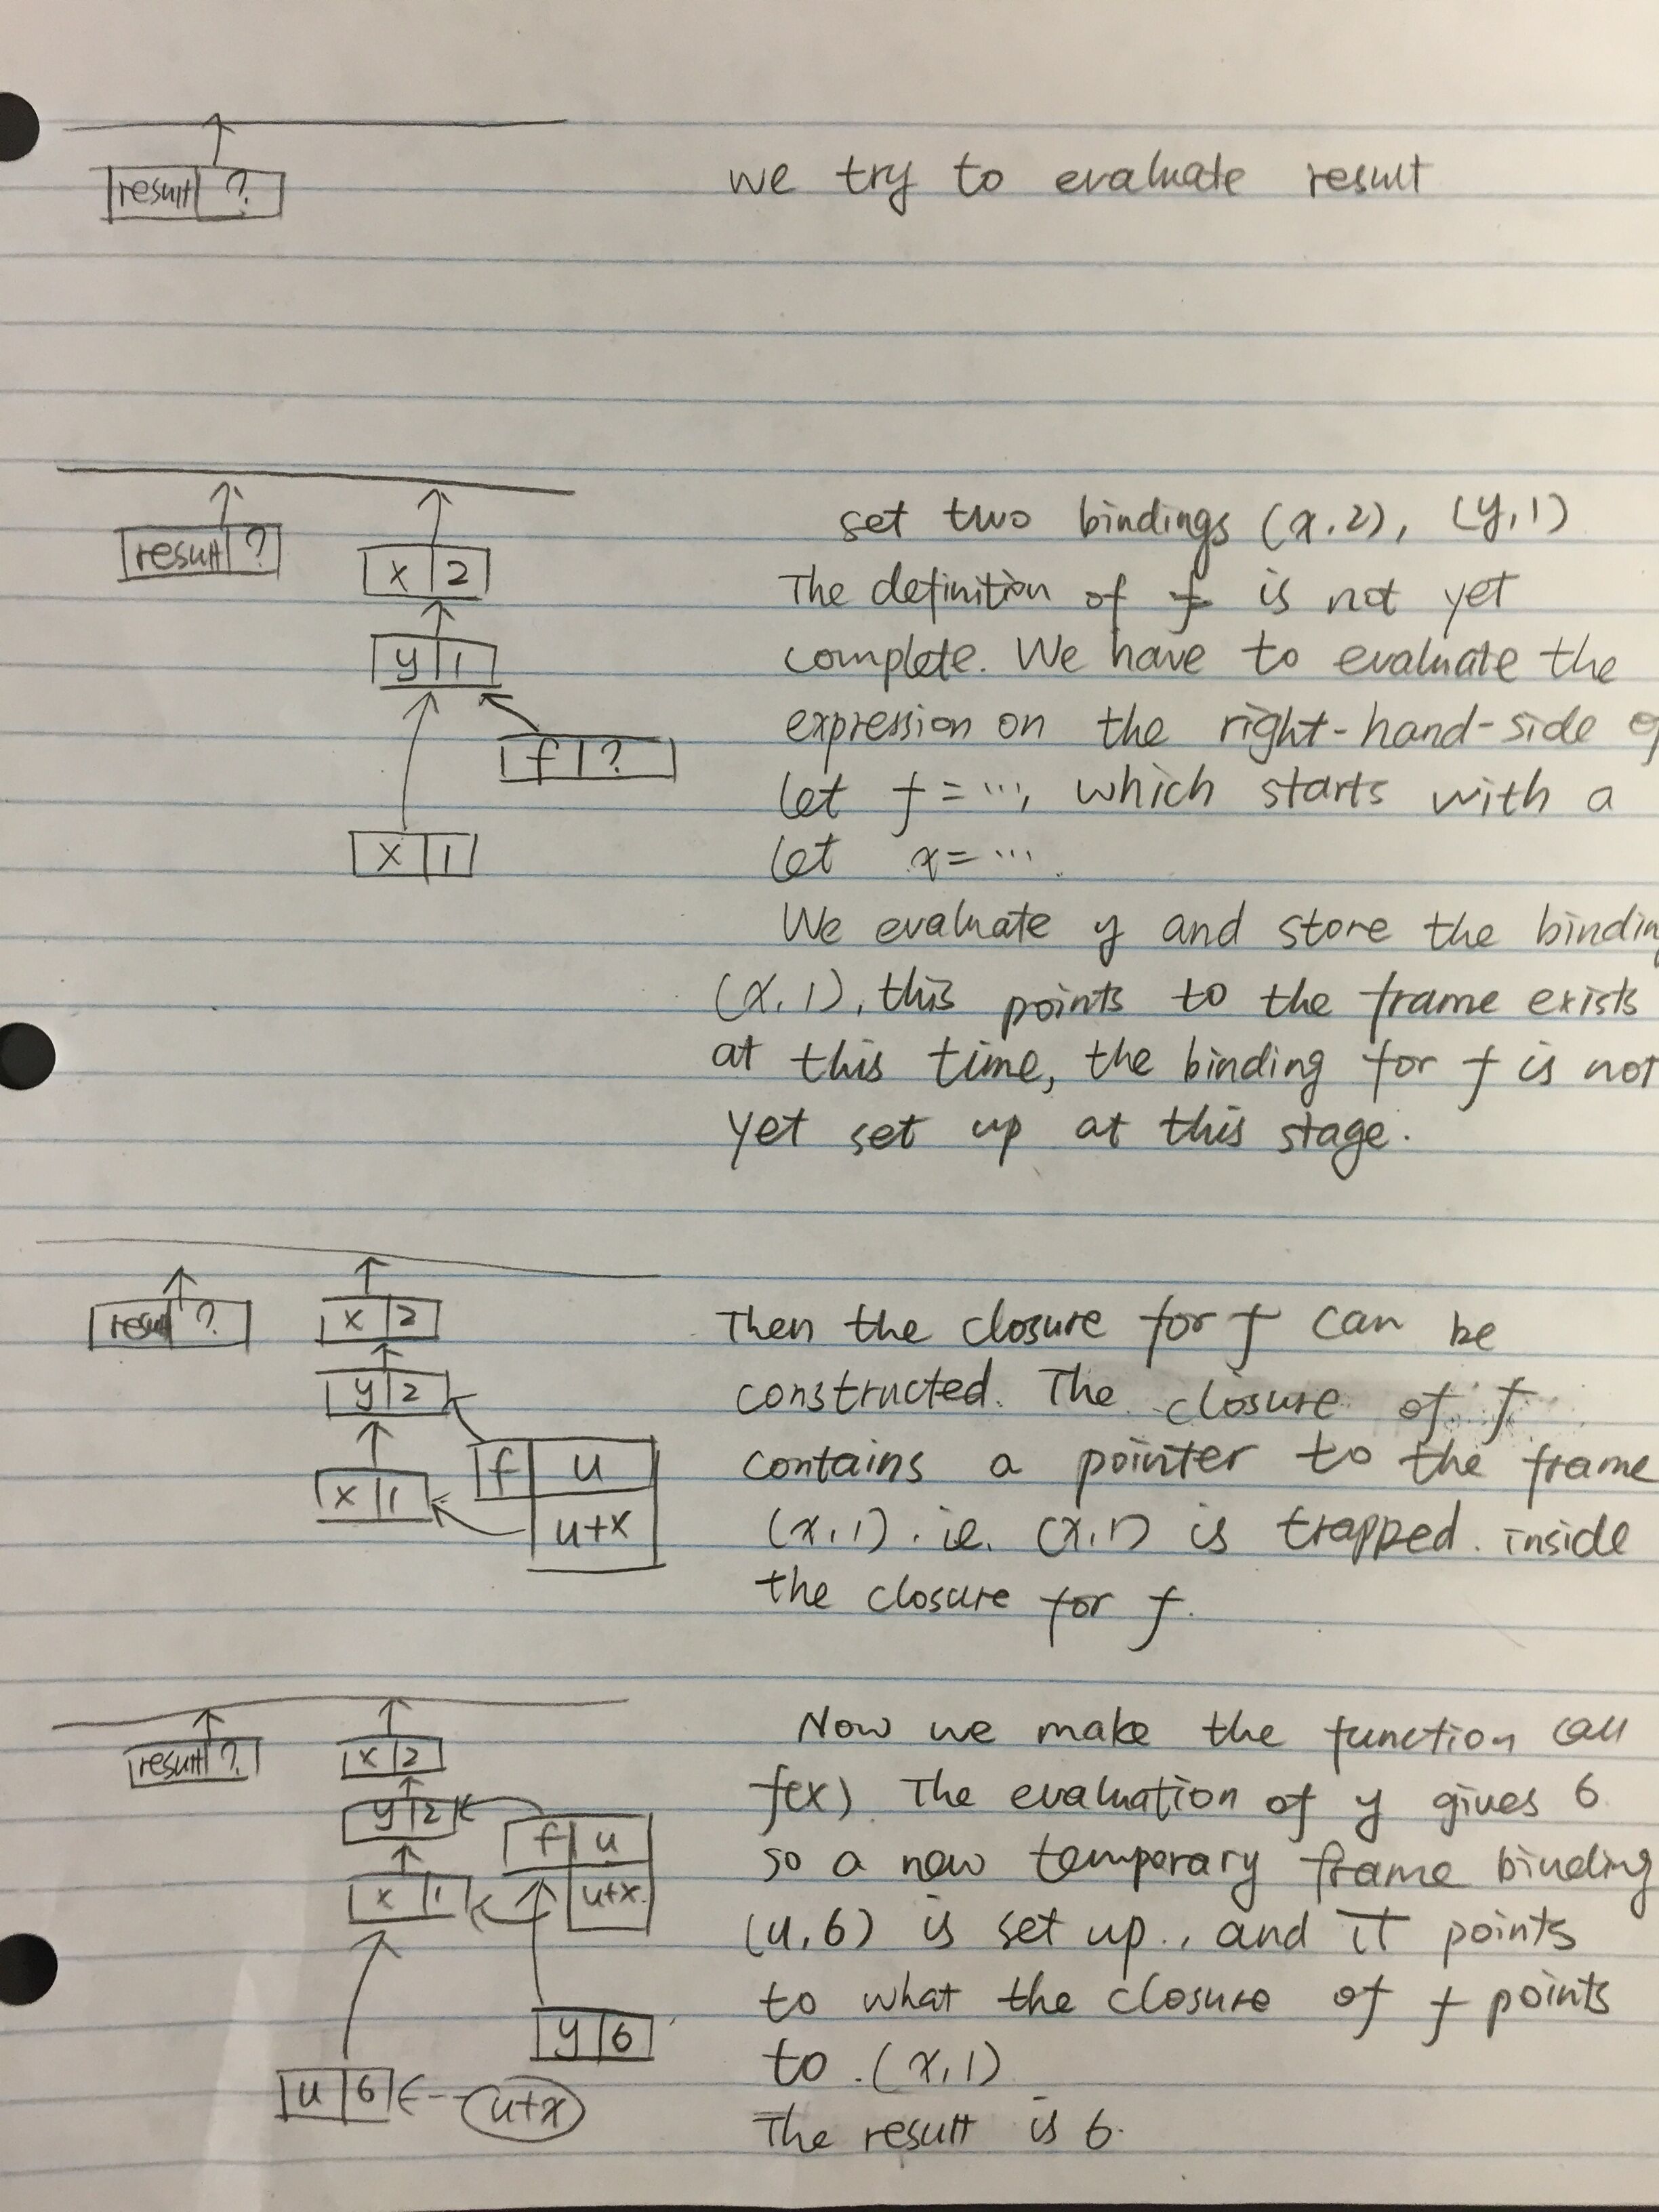 result ?
we try to evaluate result
result ?
x 2
y 1
f ?
x 1
set two bindings (x,2), (y,1)
The definition of f is not yet
complete. We have to evaluate the
expression on the right-hand-side of
let f = ..., which starts with a
let x = ... .
We evaluate y and store the bindin
(x,1), this points to the frame exists
at this time, the binding for f is not
yet set up at this stage.
result ?
x 2
y 2
x 1
f u
u+x
Then the closure for f can be
constructed. The closure of f
contains a pointer to the frame
(x,1). ie. (x,1) is trapped inside
the closure for f.
result ?
x 2
y 2
x 1
f u
u+x
y 6
u 6
u+x
Now we make the function call
f(x) The evaluation of y gives 6
so a new temporary frame binding
(u,6) is set up., and it points
to what the closure of f points
to (x,1)
The result is 6.